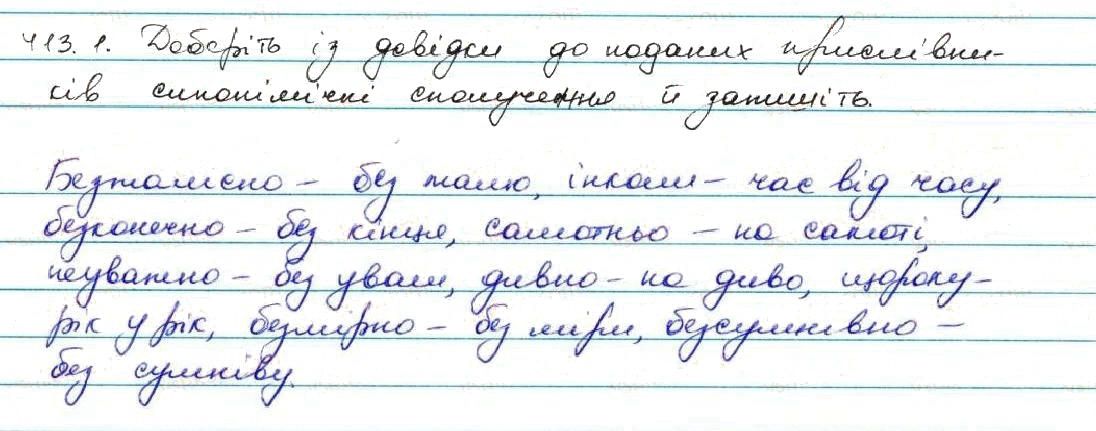 413. 1. Доберіть із довідки до поданих прислівни-
ків синонімічні сполучення й запишіть.
Безжалісно – без жалю, інколи – час від часу,
безконечно – без кінця, самотньо – на самоті,
неуважно – без уваги, дивно – на диво, щороку –
рік у рік, безмірно – без міри, безсумнівно –
без сумніву.